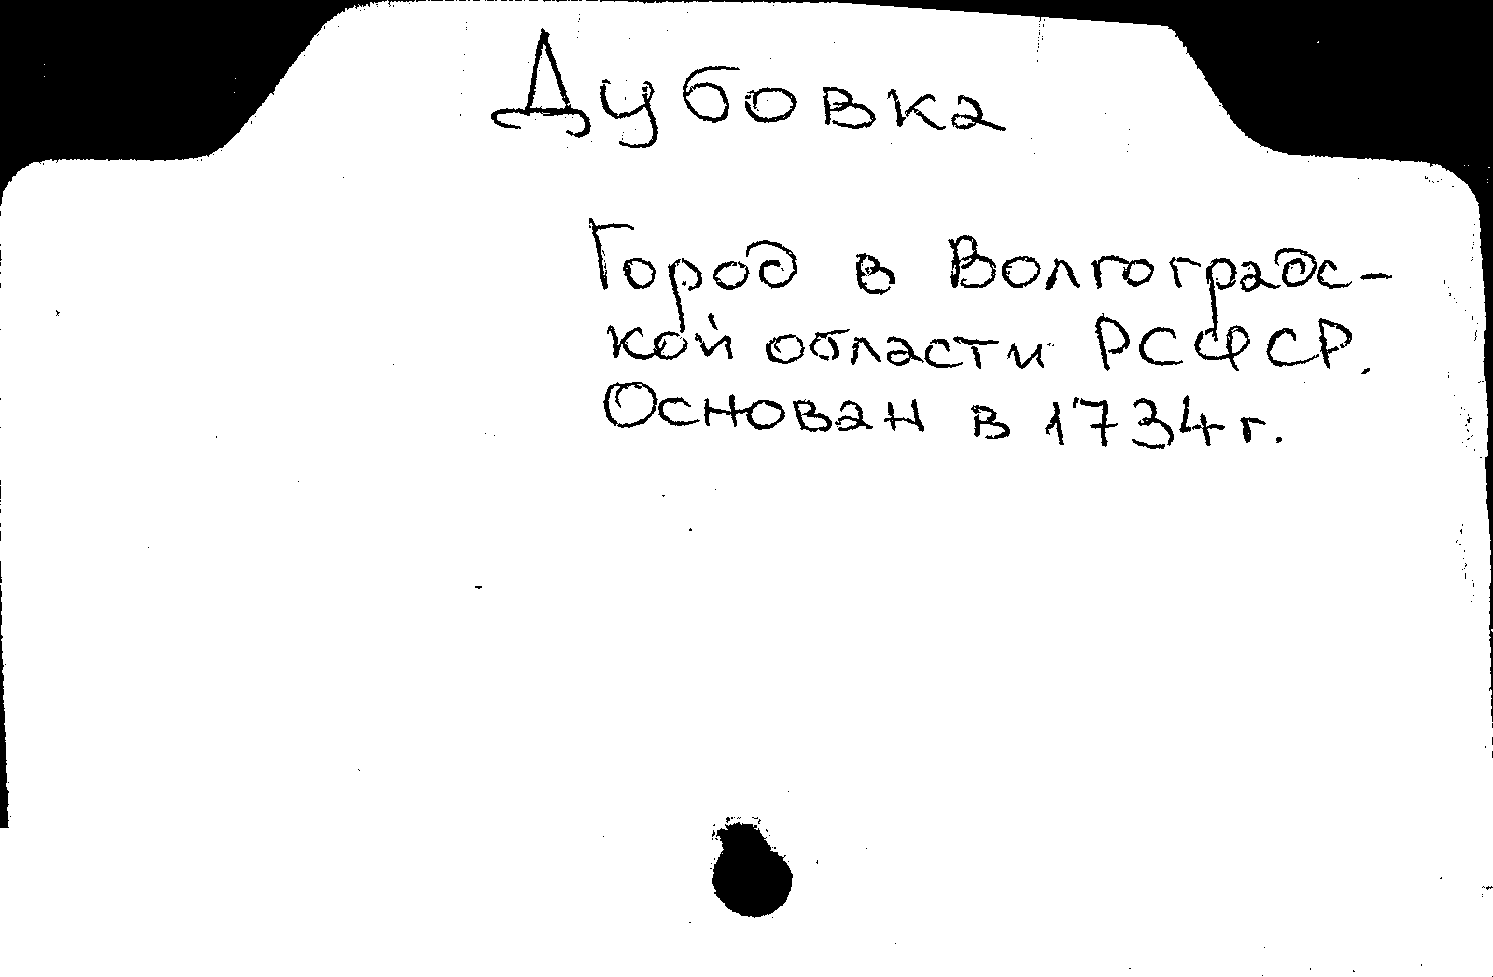 Дубовка
Город в Волгоградс-
кой области РСФСР.
Основан в 1734 г.